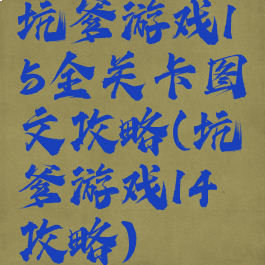 坑爹游戏1
5全关卡图
文攻略(坑
爹游戏14
攻略)